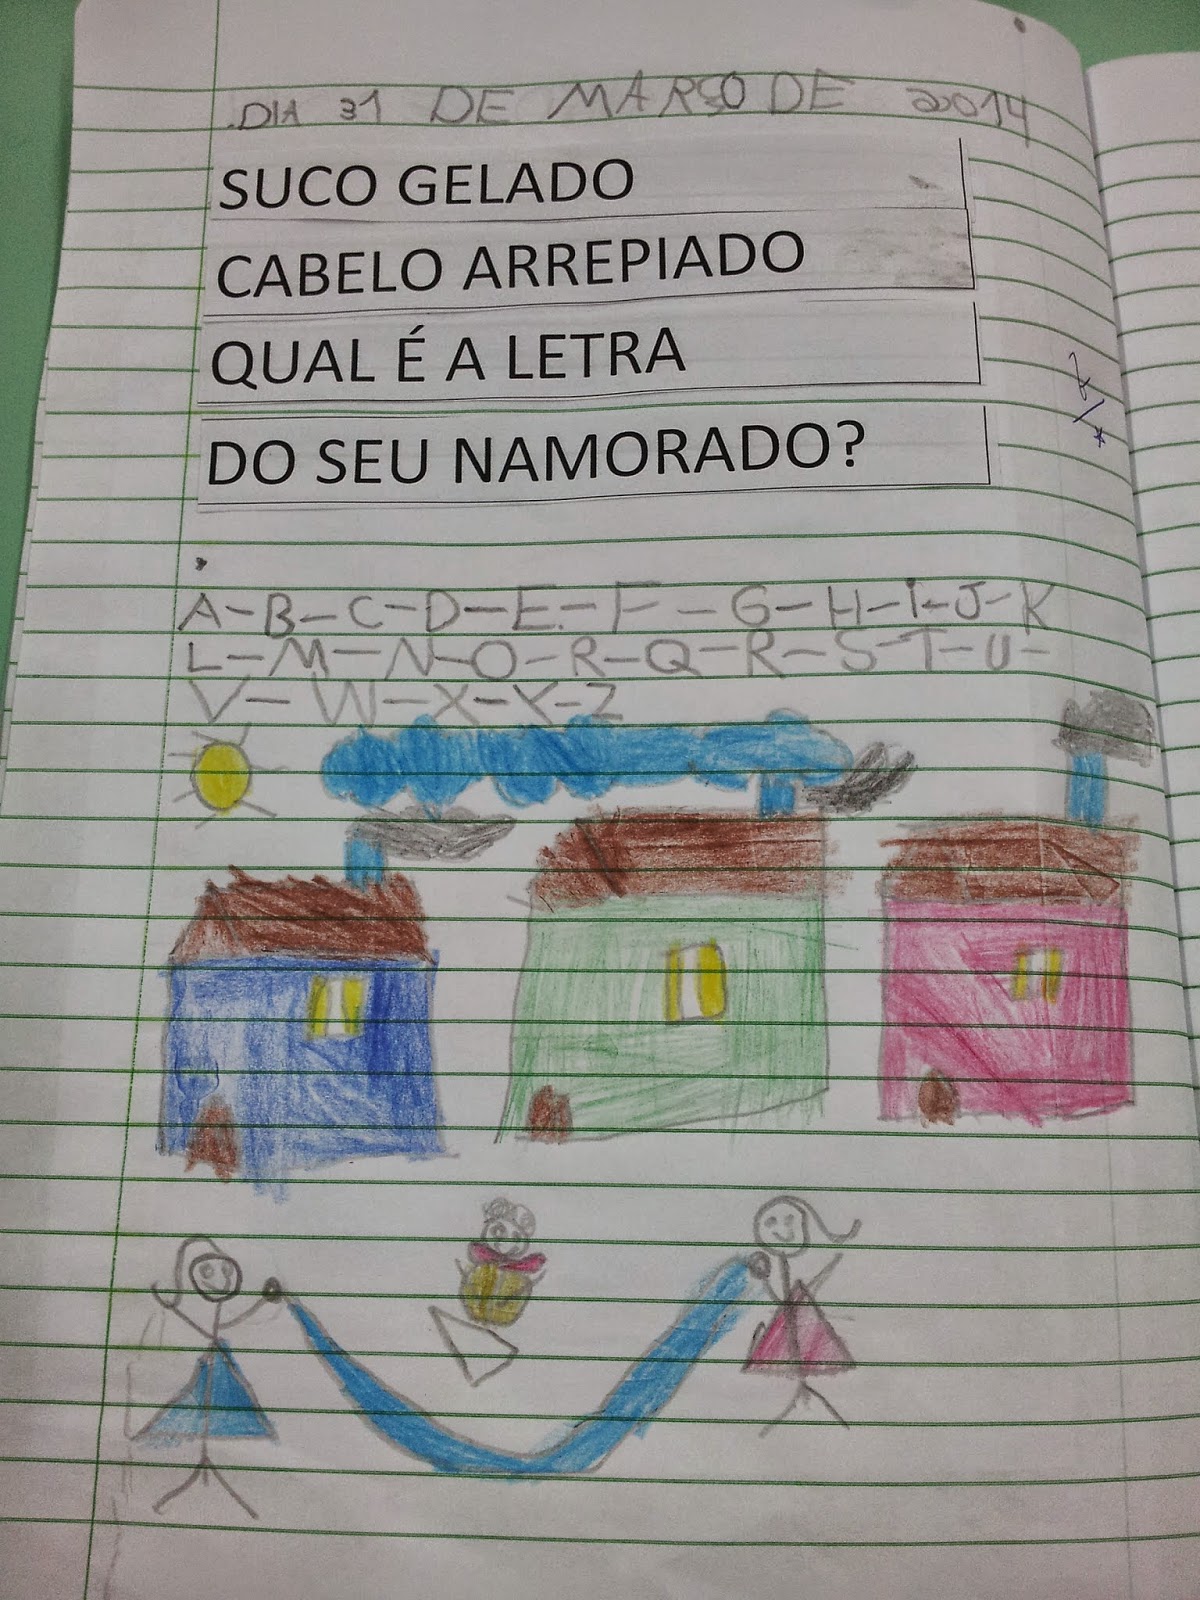 DIA 31 DE MARÇO DE 2014
SUCO GELADO
CABELO ARREPIADO
QUAL É A LETRA
DO SEU NAMORADO?
A-B-C-D-E-F-G-H-I-J-K
L-M-N-O-R-Q-R-S-T-U-
V-W-X-Y-Z